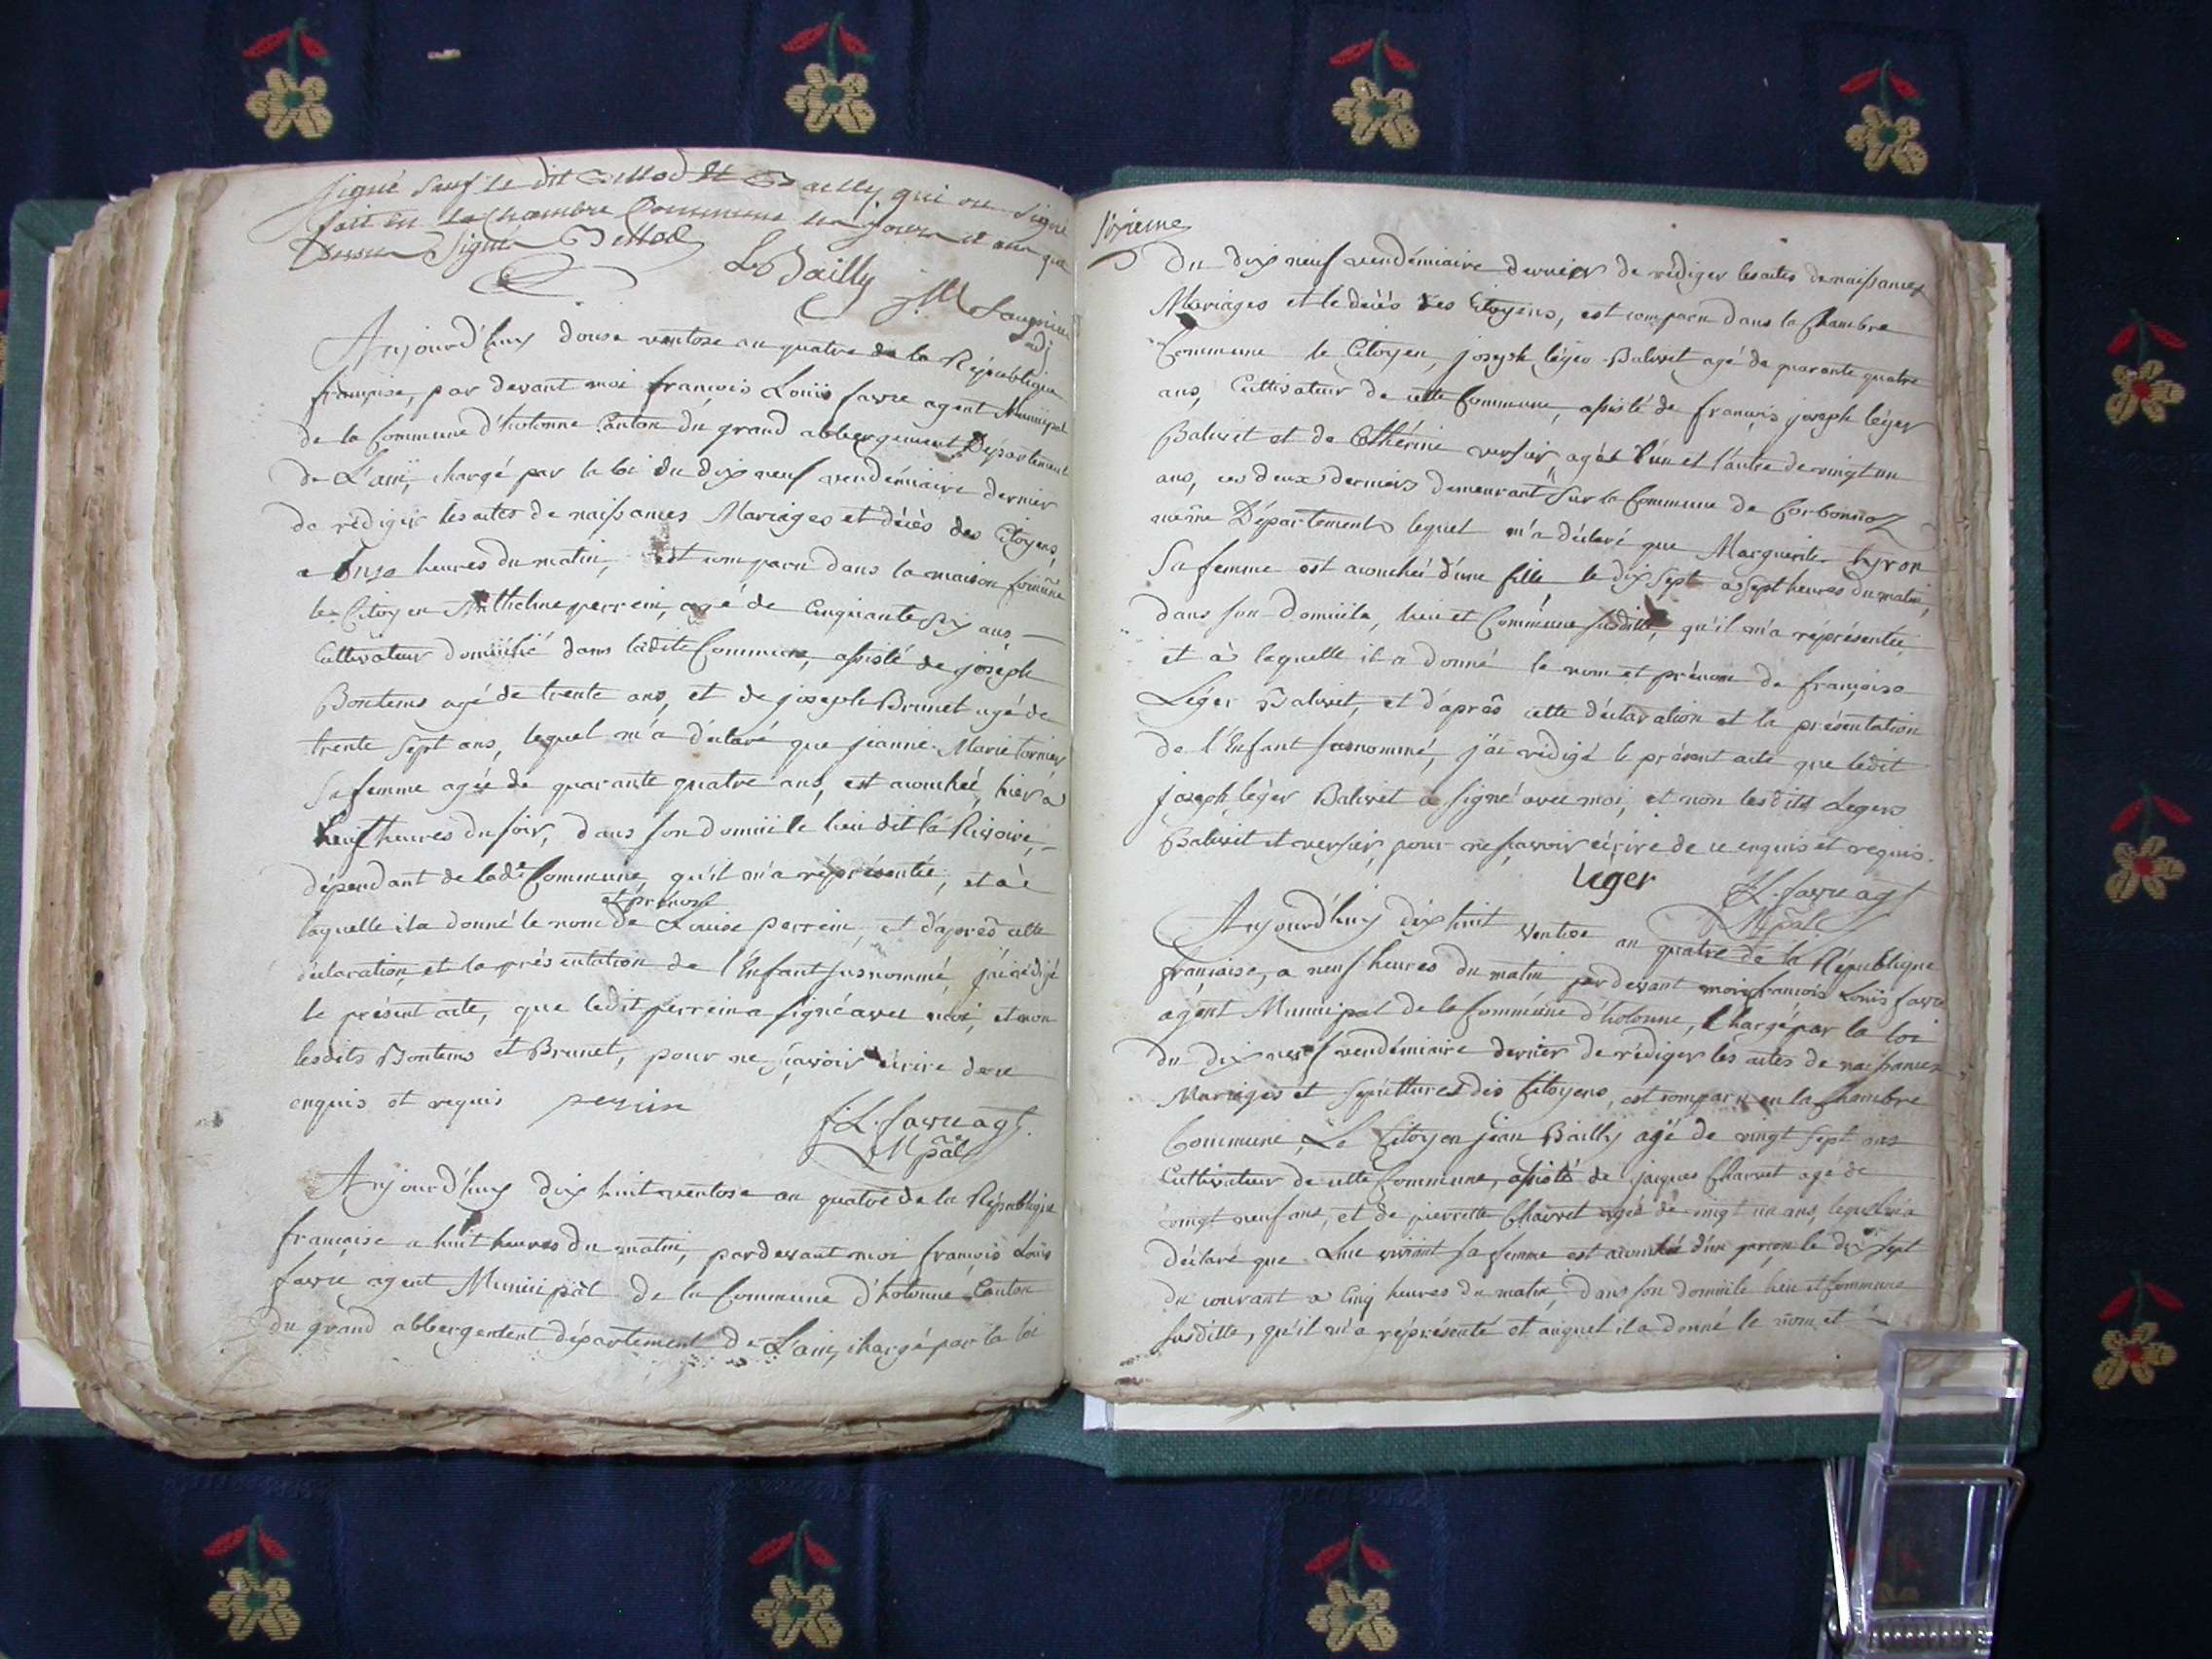 signé sauf le dit Billod et Bailly qui ont signé
fait en la Chambre Commune les jour et an que
dessus Signé Billod
L Bailly
Aujourd'huy douse ventose an quatre de la République
française, par devant moi françois Louis favre agent Municipal
de la Commune d'hotonne Canton du grand abbergement Département
de L'ain, chargé par la loi du dix neuf vendémiaire dernier
de rédiger les actes de naissances Mariages et décès des Citoyens,
a onze heures du matin, est comparu dans la maison Comũne
le Citoyen Anthelme perrein, agé de Cinquante six ans
Cultivateur domicilié dans ladite Commune, assisté de joseph
Bontems agé de trente ans, et de joseph Brunet agé de
trente sept ans, lequel m'a déclaré que jeanne Marie
sa femme agée de quarante quatre ans, est acouchée, hier à
neuf heures du soir, dans son domicile lieu dit la Rivoire,
dépendant de lade Commune qu'il m'a réprésentée, et à
et prénom
laquelle il a donné le nom de Louise perrein, et d'après cette
déclaration, et la présentation de l'Enfant susnommé, j'ai rédigé
le présent acte, que ledit perrein a signé avec moi, et non
lesdits Bontems et Brunet, pour ne sçavoir écrire de ce
enquis et requis perrin
f. L. favre agt.
Mpãl
Aujourd'huy dix huit ventose an quatre de la République
française a huit heures du matin, pardevant moi françois Louis
favre agent Municipal de la Commune d'hotonne Canton
du grand abbergement département de L'ain, chargé par la loi
sixieme
du dix neuf vendémiaire dernier de rédiger les actes de naissances
Mariages et le décès des Citoyens, est comparu dans la Chambre
Commune le Citoyen, joseph léger Balivet agé de quarante quatre
ans, Cultivateur de cette Commune, assisté de françois joseph léger
Balivet et de Cathérine agés l'un et l'autre de vingt un
ans, ces deux derniers demeurant sur la Commune de Corbonnoz
même Département lequel m'a déclaré que Marguerite
Sa femme est acouchée d'une fille le dix sept a sept heures du matin,
dans son domicile, lieu et Commune susditte, qu'il m'a réprésentée
et à laquelle il a donné le nom et prénom de françoise
Léger Balivet, et d'après cette déclaration et la présentation
de l'Enfant susnommé, j'ai rédigé le présent acte que ledit
joseph léger Balivet a signé avec moi, et non lesdits Legers
Balivet et pour ne sçavoir écrire de ce enquis et requis.
léger f. L. favre agt
Mpãl
Aujourd'huy dix huit Ventose an quatre de la République
française, a neuf heures du matin pardevant moi françois Louis favre
agent Municipal de la Commune d'hotonne, Chargé par la loi
du dix neuf vendémiaire dernier de rédiger les actes de naissances
Mariages et sépultures des Citoyens, est comparu en la Chambre
Commune, Le Citoyen jean Bailly agé de vingt sept ans
Cultivateur de cette Commune, assisté de jacques Charvet agé de
vingt neuf ans, et de pierrette Charvet agée de vingt un ans, lequel m'a
déclaré que sa femme est acouchée d'un garçon le dix sept
du courant a Cinq heures du matin, dans son domicile lieu et Commune
susditte, qu'il m'a réprésenté et auquel il a donné le nom et